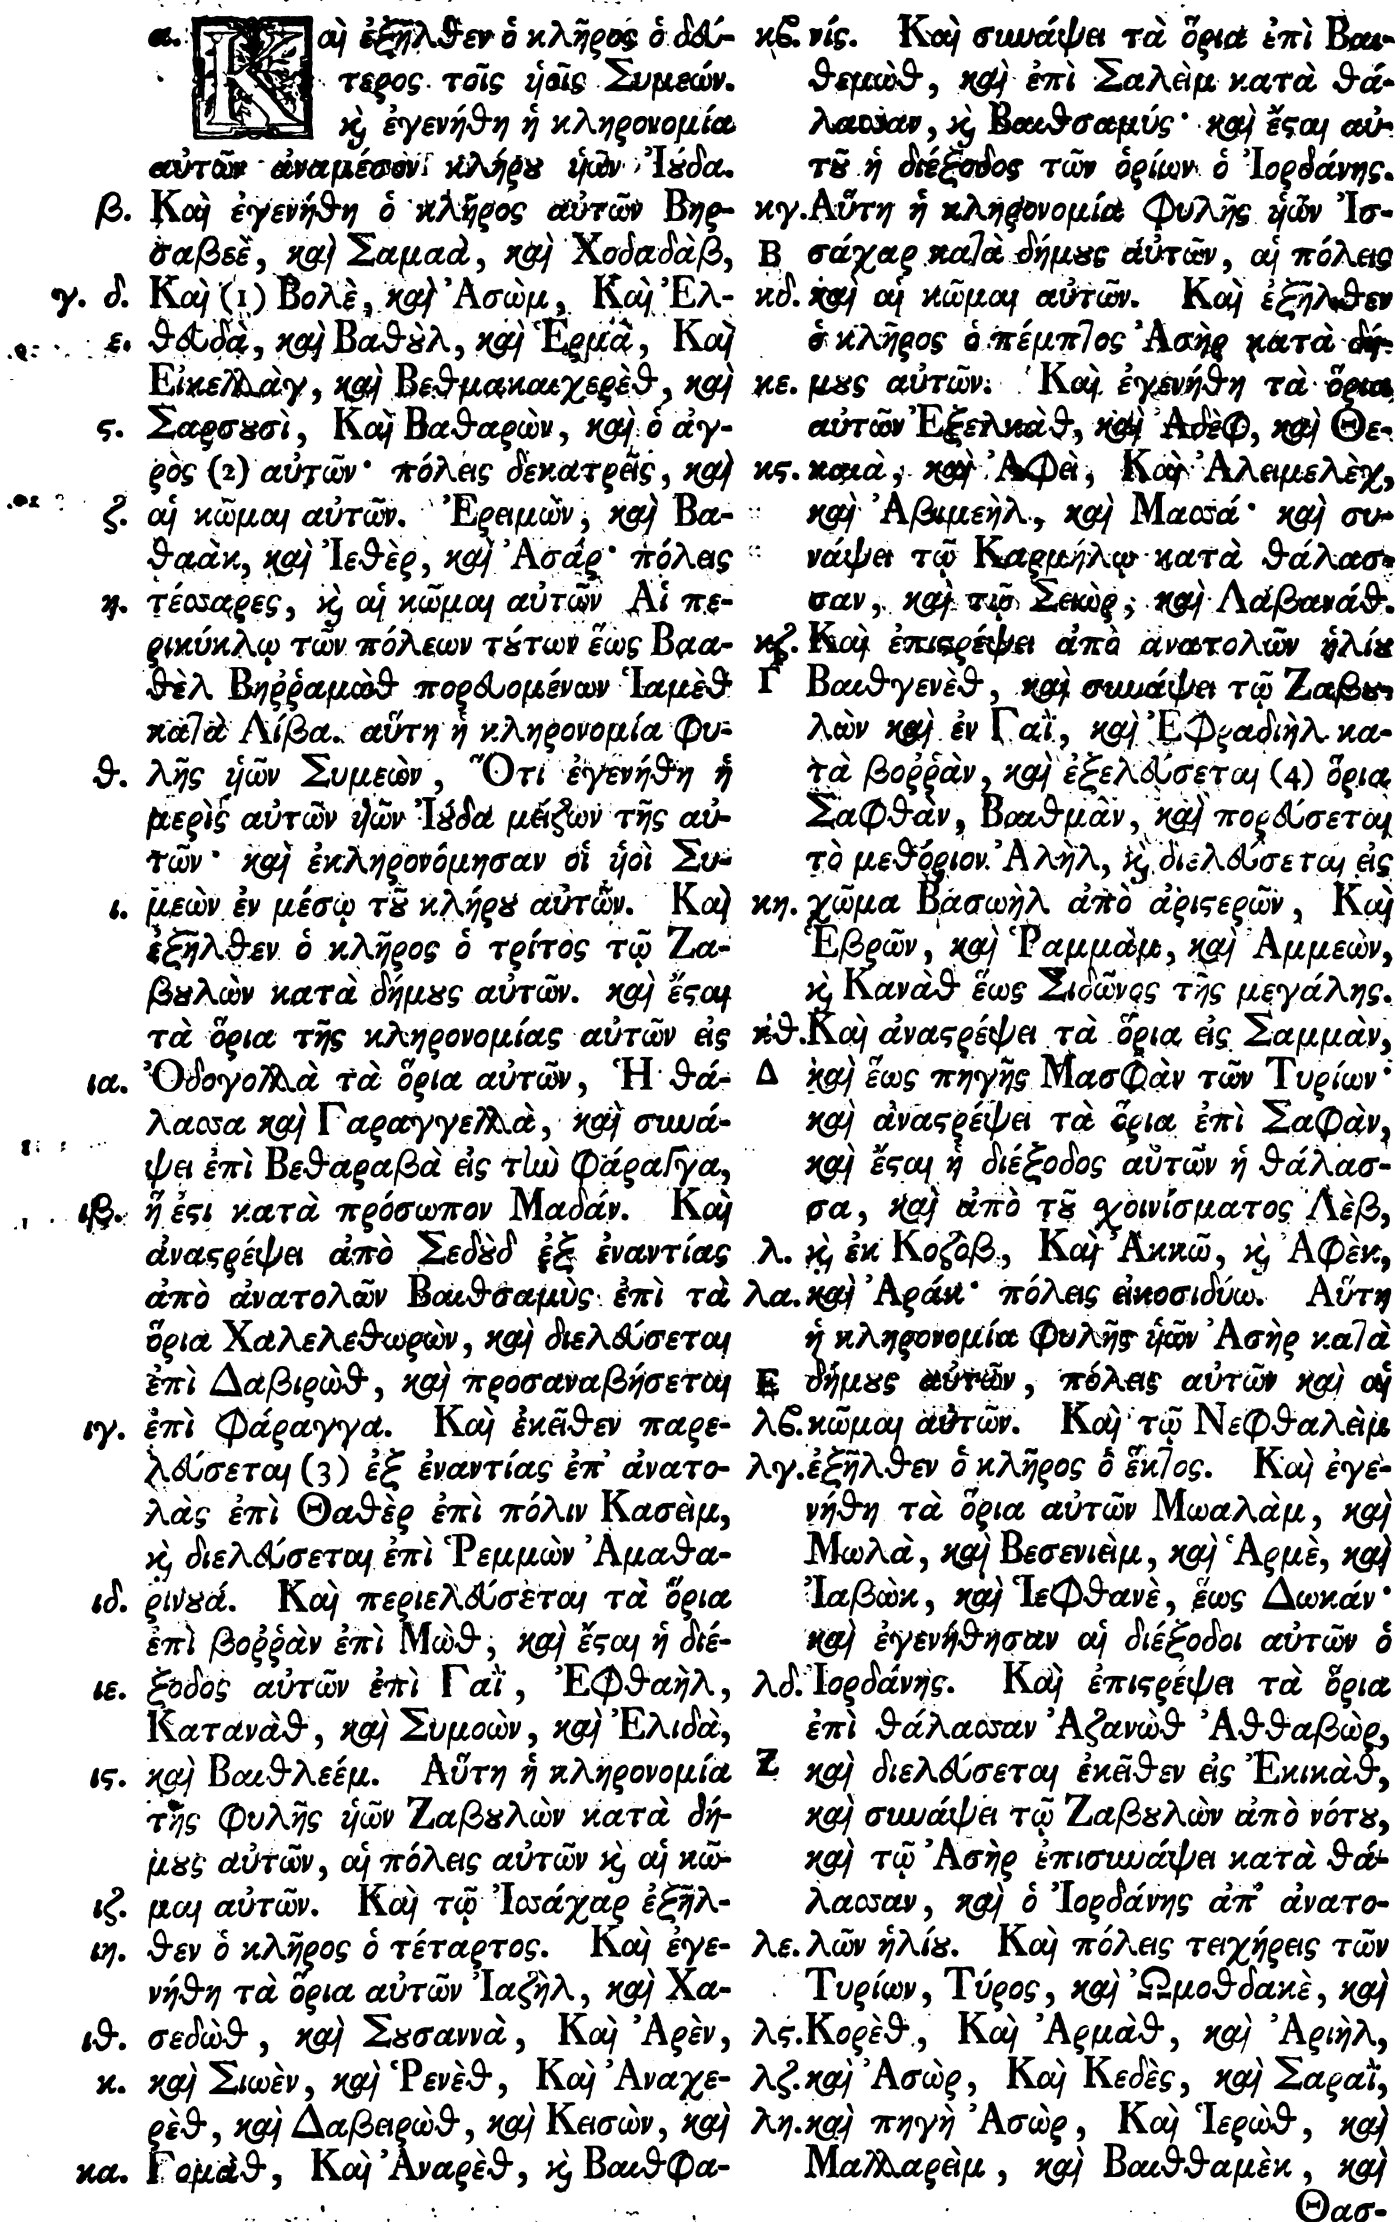 α. Καὶ ἐξῆλθεν ὁ κλῆρος ὁ δεύ-
τερος τοῖς ὑοῖς Συμεών.
καὶ ἐγενήθη ἡ κληρονομία
αὐτῶν ἀναμέσον κλήρου ὑῶν Ἰούδα.
β. Καὶ ἐγενήθη ὁ κλῆρος αὐτῶν Βηρ-
σαβεὲ, καὶ Σαμαὰ, καὶ Χοδαδὰβ,
γ. δ. Καὶ (1) Βολὲ, καὶ Ἀσὼμ, Καὶ Ἐλ-
ε. θευδὰ, καὶ Βαθοὺλ, καὶ Ἑρμὰ, Καὶ
Εἰκελλὰγ, καὶ Βεθμακαιχερὲθ, καὶ
ς. Σαρσουσὶ, Καὶ Βαθαρὼν, καὶ ὁ ἀγ-
ρὸς (2) αὐτῶν· πόλεις δεκατρεῖς, καὶ
ζ. αἱ κῶμαι αὐτῶν. Ἐρειμὼν, καὶ Βα-
θαὰκ, καὶ Ἰεθὲρ, καὶ Ἀσάρ· πόλεις
η. τέσσαρες, καὶ αἱ κῶμαι αὐτῶν Αἱ πε-
ρικύκλῳ τῶν πόλεων τούτων ἕως Βαα-
θὲλ Βηῤῥαμὼθ πορευομένων Ἰαμὲθ
κατὰ Λίβα. αὕτη ἡ κληρονομία φυ-
θ. λῆς ὑῶν Συμεὼν, Ὅτι ἐγενήθη ἡ
μερὶς αὐτῶν ὑῶν Ἰούδα μείζων τῆς αὐ-
τῶν· καὶ ἐκληρονόμησαν οἱ ὑοὶ Συ-
ι. μεὼν ἐν μέσῳ τοῦ κλήρου αὐτῶν. Καὶ
ἐξῆλθεν ὁ κλῆρος ὁ τρίτος τῷ Ζα-
βουλὼν κατὰ δήμους αὐτῶν. καὶ ἔσται
τὰ ὅρια τῆς κληρονομίας αὐτῶν εἰς
ια. Ὀδογολλὰ τὰ ὅρια αὐτῶν, Ἡ θά-
λασσα καὶ Γαραγγελλὰ, καὶ συνά-
ψει ἐπὶ Βεθαραβὰ εἰς τὴν φάραγγα,
ιβ. ἥ ἐστι κατὰ πρόσωπον Μαδάν. Καὶ
ἀναστρέψει ἀπὸ Σεδοὺδ ἐξ ἐναντίας
ἀπὸ ἀνατολῶν Βαιθσαμὺς ἐπὶ τὰ
ὅρια Χαλελεθωρὼν, καὶ διελεύσεται
ἐπὶ Δαβιρὼθ, καὶ προσαναβήσεται
ιγ. ἐπὶ φάραγγα. Καὶ ἐκεῖθεν παρε-
λεύσεται (3) ἐξ ἐναντίας ἐπ᾽ ἀνατο-
λὰς ἐπὶ Θαθὲρ ἐπὶ πόλιν Κασεὶμ,
καὶ διελεύσεται ἐπὶ Ῥεμμὼν Ἀμαθα-
ιδ. ρινουά. Καὶ περιελεύσεται τὰ ὅρια
ἐπὶ βοῤῥὰν ἐπὶ Μὼθ, καὶ ἔσται ἡ διέ-
ιε. ξοδος αὐτῶν ἐπὶ Γαῒ, Ἐφθαὴλ,
Κατανὰθ, καὶ Συμοὼν, καὶ Ἐλιδὰ,
ις. καὶ Βαιθλεέμ. Αὕτη ἡ κληρονομία
τῆς φυλῆς ὑῶν Ζαβουλὼν κατὰ δή-
μους αὐτῶν, αἱ πόλεις αὐτῶν καὶ αἱ κῶ-
ιζ. μαι αὐτῶν. Καὶ τῷ Ἰσσάχαρ ἐξῆλ-
ιη. θεν ὁ κλῆρος ὁ τέταρτος. Καὶ ἐγε-
νήθη τὰ ὅρια αὐτῶν Ἰαζὴλ, καὶ Χα-
ιθ. σεδὼθ, καὶ Σουσαννὰ, Καὶ Ἀρὲν,
κ. καὶ Σιωὲν, καὶ Ῥενὲθ, Καὶ Ἀναχε-
ρὲθ, καὶ Δαβειρὼθ, καὶ Κεισὼν, καὶ
κα. Γομὰθ, Καὶ Ἀναρὲθ, καὶ Βαιθφα-
κβ. νίς. Καὶ συνάψει τὰ ὅρια ἐπὶ Βαι-
θεμὼθ, καὶ ἐπὶ Σαλεὶμ κατὰ θά-
λασσαν, καὶ Βαιθσαμύς· καὶ ἔσται αὐ-
τοῦ ἡ διέξοδος τῶν ὁρίων ὁ Ἰορδάνης.
κγ. Αὕτη ἡ κληρονομία φυλῆς ὑῶν Ἰσ-
Β σάχαρ κατὰ δήμους αὐτῶν, αἱ πόλεις
κδ. καὶ αἱ κῶμαι αὐτῶν. Καὶ ἐξῆλθεν
ὁ κλῆρος ὁ πέμπτος Ἀσὴρ κατὰ δή-
κε. μους αὐτῶν. Καὶ ἐγενήθη τὰ ὅρια
αὐτῶν Ἐξελκὰθ, καὶ Ἀδὲφ, καὶ Θε-
κς. καιὰ, καὶ Ἀφεὶ, Καὶ Ἀλειμελὲχ,
καὶ Ἀβιμεὴλ, καὶ Μασσά· καὶ συ-
νάψει τῷ Καρμήλῳ κατὰ θάλασ-
σαν, καὶ τῷ Σειὼρ, καὶ Λαβανάθ.
κζ. Καὶ ἐπιστρέψει ἀπὸ ἀνατολῶν ἡλίου
Γ Βαιθγενὲθ, καὶ συνάψει τῷ Ζαβου-
λὼν καὶ ἐν Γαῒ, καὶ Ἐφραδιὴλ κα-
τὰ βοῤῥὰν, καὶ ἐξελεύσεται (4) ὅρια
Σαφθὰν, Βαιθμὰν, καὶ πορεύσεται
τὸ μεθόριον Ἀλὴλ, καὶ διελεύσεται εἰς
κη. χῶμα Βασωὴλ ἀπὸ ἀριστερῶν, Καὶ
Ἐβρῶν, καὶ Ῥαμμὰμ, καὶ Ἀμμεὼν,
καὶ Κανὰθ ἕως Σιδῶνος τῆς μεγάλης.
κθ. Καὶ ἀναστρέψει τὰ ὅρια εἰς Σαμμὰν,
Δ καὶ ἕως πηγῆς Μασφὰν τῶν Τυρίων·
καὶ ἀναστρέψει τὰ ὅρια ἐπὶ Σαφὰν,
καὶ ἔσται ἡ διέξοδος αὐτῶν ἡ θάλασ-
σα, καὶ ἀπὸ τοῦ χοινίσματος Λὲβ,
λ. καὶ ἐκ Κοζὸβ, Καὶ Ἀκκῶ, καὶ Ἀφὲκ,
λα. καὶ Ἀράκ· πόλεις εἰκοσιδύω. Αὕτη
ἡ κληρονομία φυλῆς ὑῶν Ἀσὴρ κατὰ
Ε δήμους αὐτῶν, πόλεις αὐτῶν καὶ αἱ
λβ. κῶμαι αὐτῶν. Καὶ τῷ Νεφθαλεὶμ
λγ. ἐξῆλθεν ὁ κλῆρος ὁ ἕκτος. Καὶ ἐγε-
νήθη τὰ ὅρια αὐτῶν Μωαλὰμ, καὶ
Μωλὰ, καὶ Βεσενιεὶμ, καὶ Ἀρμὲ, καὶ
Ἰαβὼκ, καὶ Ἰεφθανὲ, ἕως Δωκάν·
καὶ ἐγενήθησαν αἱ διέξοδοι αὐτῶν ὁ
λδ. Ἰορδάνης. Καὶ ἐπιστρέψει τὰ ὅρια
ἐπὶ θάλασσαν Ἀζανὼθ Ἀθθαβὼρ,
Ζ καὶ διελεύσεται ἐκεῖθεν εἰς Ἐκικὰθ,
καὶ συνάψει τῷ Ζαβουλὼν ἀπὸ νότου,
καὶ τῷ Ἀσὴρ ἐπισυνάψει κατὰ θά-
λασσαν, καὶ ὁ Ἰορδάνης ἀπ᾽ ἀνατο-
λε. λῶν ἡλίου. Καὶ πόλεις τειχήρεις τῶν
Τυρίων, Τύρος, καὶ Ὠμοθδακὲ, καὶ
λς. Κορὲθ, Καὶ Ἀρμὰθ, καὶ Ἀριὴλ,
λζ. καὶ Ἀσὼρ, Καὶ Κεδὲς, καὶ Σαραῒ,
λη. καὶ πηγὴ Ἀσὼρ, Καὶ Ἰερὼθ, καὶ
Μαλλαρεὶμ, καὶ Βαιθθαμὲκ, καὶ
Θασ-